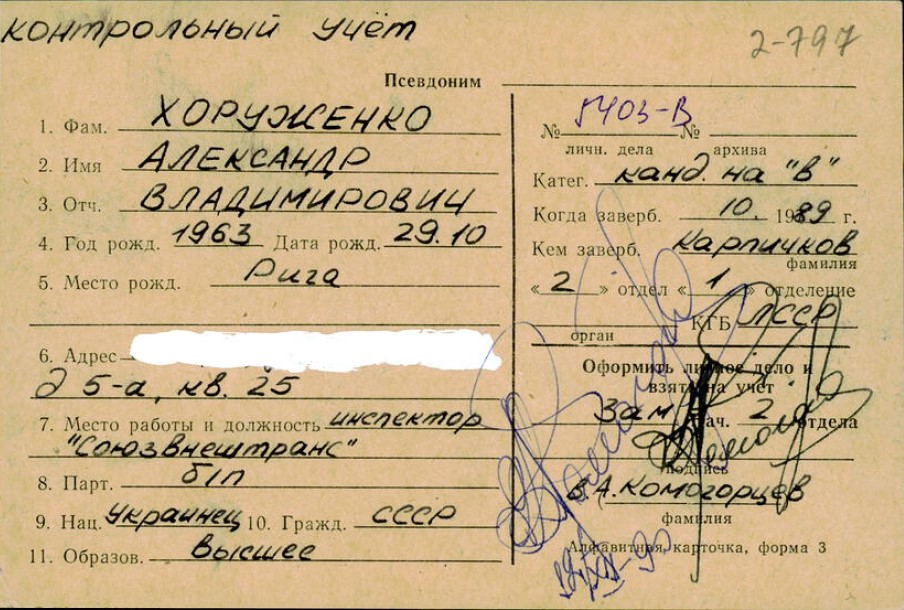 контрольный учёт
2-797
Псевдоним
1. Фам. ХОРУЖЕНКО
2. Имя АЛЕКСАНДР
3. Отч. ВЛАДИМИРОВИЧ
4. Год рожд. 1963 Дата рожд. 29.10
5. Место рожд. Рига
6. Адрес
д 5-а, кв. 25
7. Место работы и должность инспектор
"Союзвнештранс"
8. Парт. б/п
9. Нац. Украинец 10. Гражд. СССР
11. Образов. высшее
№ 5403-В № 
личн. дела архива
Катег. канд. на "В"
Когда заверб. 10. 1989 г.
Кем заверб. Карпичков
фамилия
« 2 » отдел « 1 » отделение
КГБ ЛССР
орган
Оформить личное дело и
взять на учет
Зам нач. 2 отдела
подпись
В.А. Комогорцев
фамилия
Алфавитная карточка, форма 3